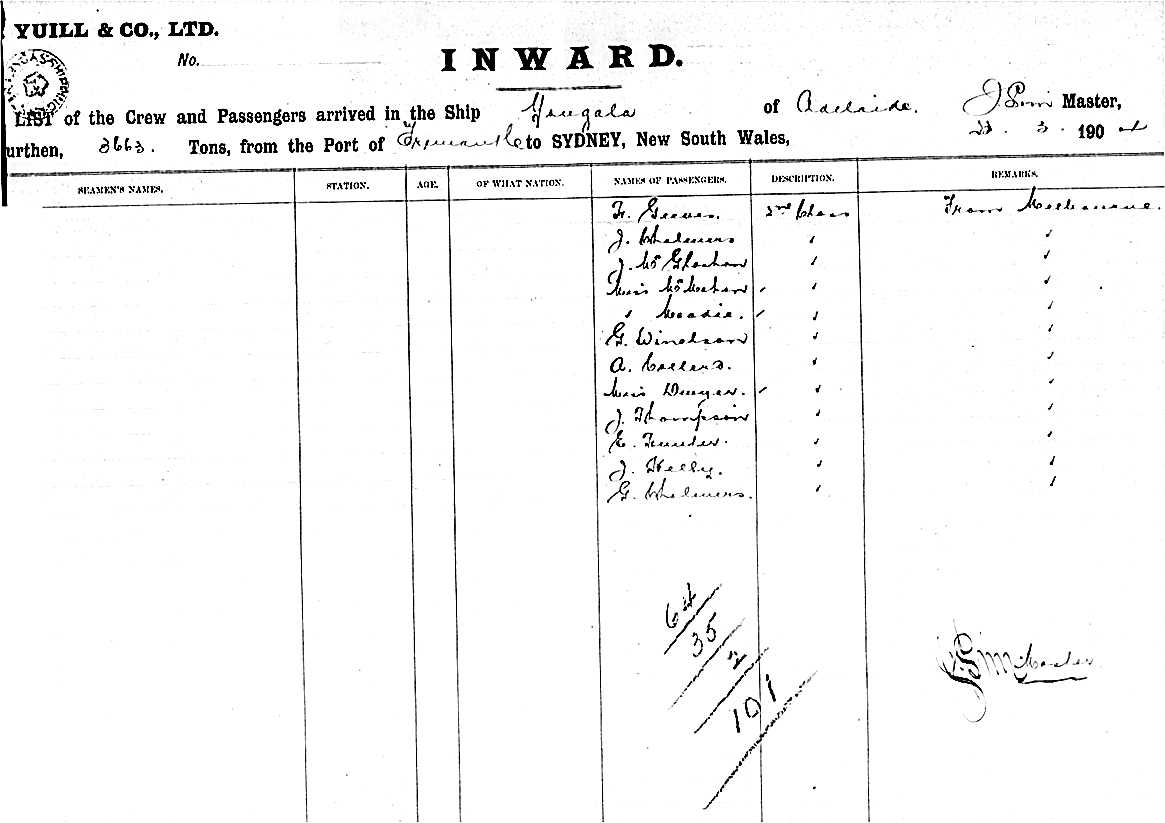 YUILL & CO., LTD.
No.
INWARD.
LIST of the Crew and Passengers arrived in the Ship Yongala of Adelaide. J Sim Master,
urthen, 3663. Tons, from the Port of Fremantle to SYDNEY, New South Wales, 21. 3. 1904
SEAMEN'S NAMES. STATION. AGE. OF WHAT NATION. NAMES OF PASSENGERS. DESCRIPTION. REMARKS.
Fr. Greeves. 2nd Class From Melbourne.
J. Chalmers " "
J. McGlashan " "
Miss McMeckan " "
" Meadie. " "
G. Windsson " "
A. Collers. " "
Miss Dwyer. " "
J. Thompson " "
E. " "
J. Kelly. " "
G. Chalmers. " "
64
35
2
101
J Sim Master